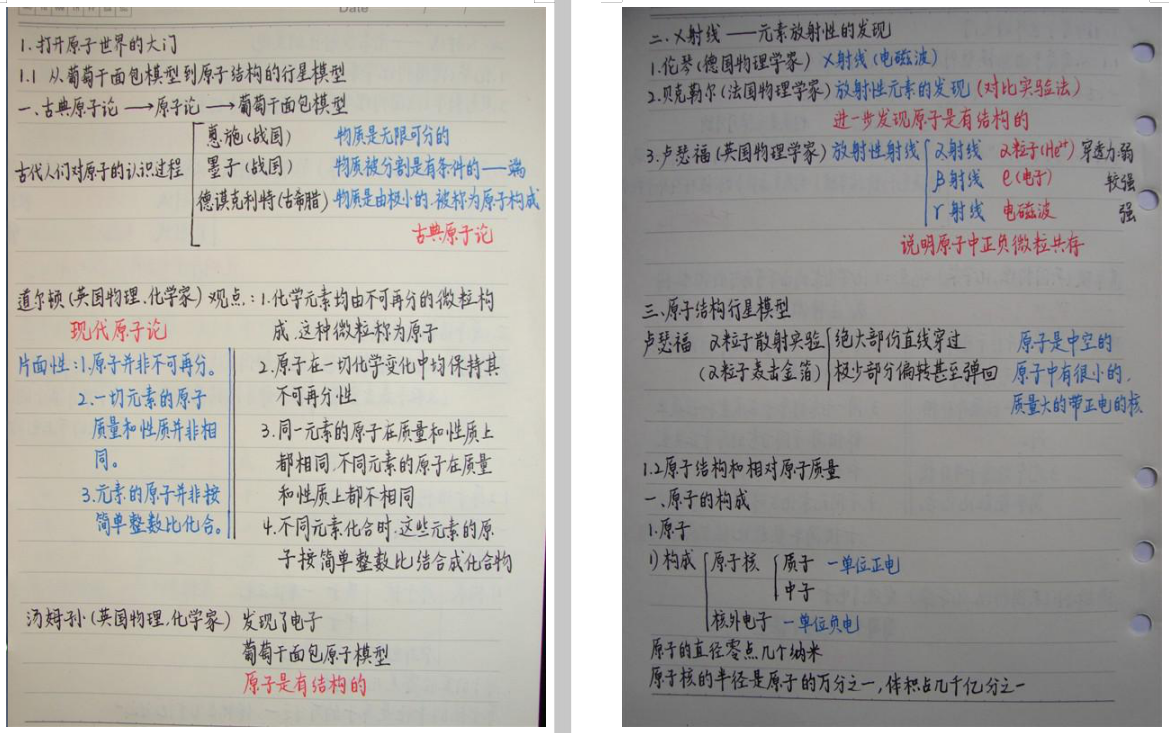 Date
1.打开原子世界的大门
1.1 从葡萄干面包模型到原子结构的行星模型
一.古典原子论→原子论→葡萄干面包模型
古代人们对原子的认识过程
惠施(战国) 物质是无限可分的
墨子(战国) 物质被分割是有条件的——端
德谟克利特(古希腊) 物质是由极小的.被称为原子构成
古典原子论
道尔顿(英国物理.化学家)观点.:1.化学元素均由不可再分的微粒构
成.这种微粒称为原子
现代原子论
2.原子在一切化学变化中均保持其
不可再分性
3.同一元素的原子在质量和性质上
都相同.不同元素的原子在质量
和性质上都不相同
4.不同元素化合时.这些元素的原
子按简单整数比结合成化合物
片面性:1.原子并非不可再分。
2.一切元素的原子
质量和性质并非相
同。
3.元素的原子并非按
简单整数比化合。
汤姆孙(英国物理.化学家) 发现了电子
葡萄干面包原子模型
原子是有结构的
二.X射线——元素放射性的发现
1.伦琴(德国物理学家) X射线(电磁波)
2.贝克勒尔(法国物理学家)放射性元素的发现(对比实验法)
进一步发现原子是有结构的
3.卢瑟福(英国物理学家)放射性射线 α射线 α粒子(He²⁺) 穿透力.弱
β射线 e(电子) 较强
γ射线 电磁波 强
说明原子中正负微粒共存
三.原子结构行星模型
卢瑟福 α粒子散射实验 绝大部份直线穿过 原子是中空的
(α粒子轰击金箔) 极少部分偏转甚至弹回 原子中有很小的.
质量大的带正电的核
1.2原子结构和相对原子质量
一.原子的构成
1.原子
1)构成 原子核 质子 一单位正电
中子
核外电子 一单位负电
原子的直径零点几个纳米
原子核的半径是原子的万分之一,体积占几千亿分之一